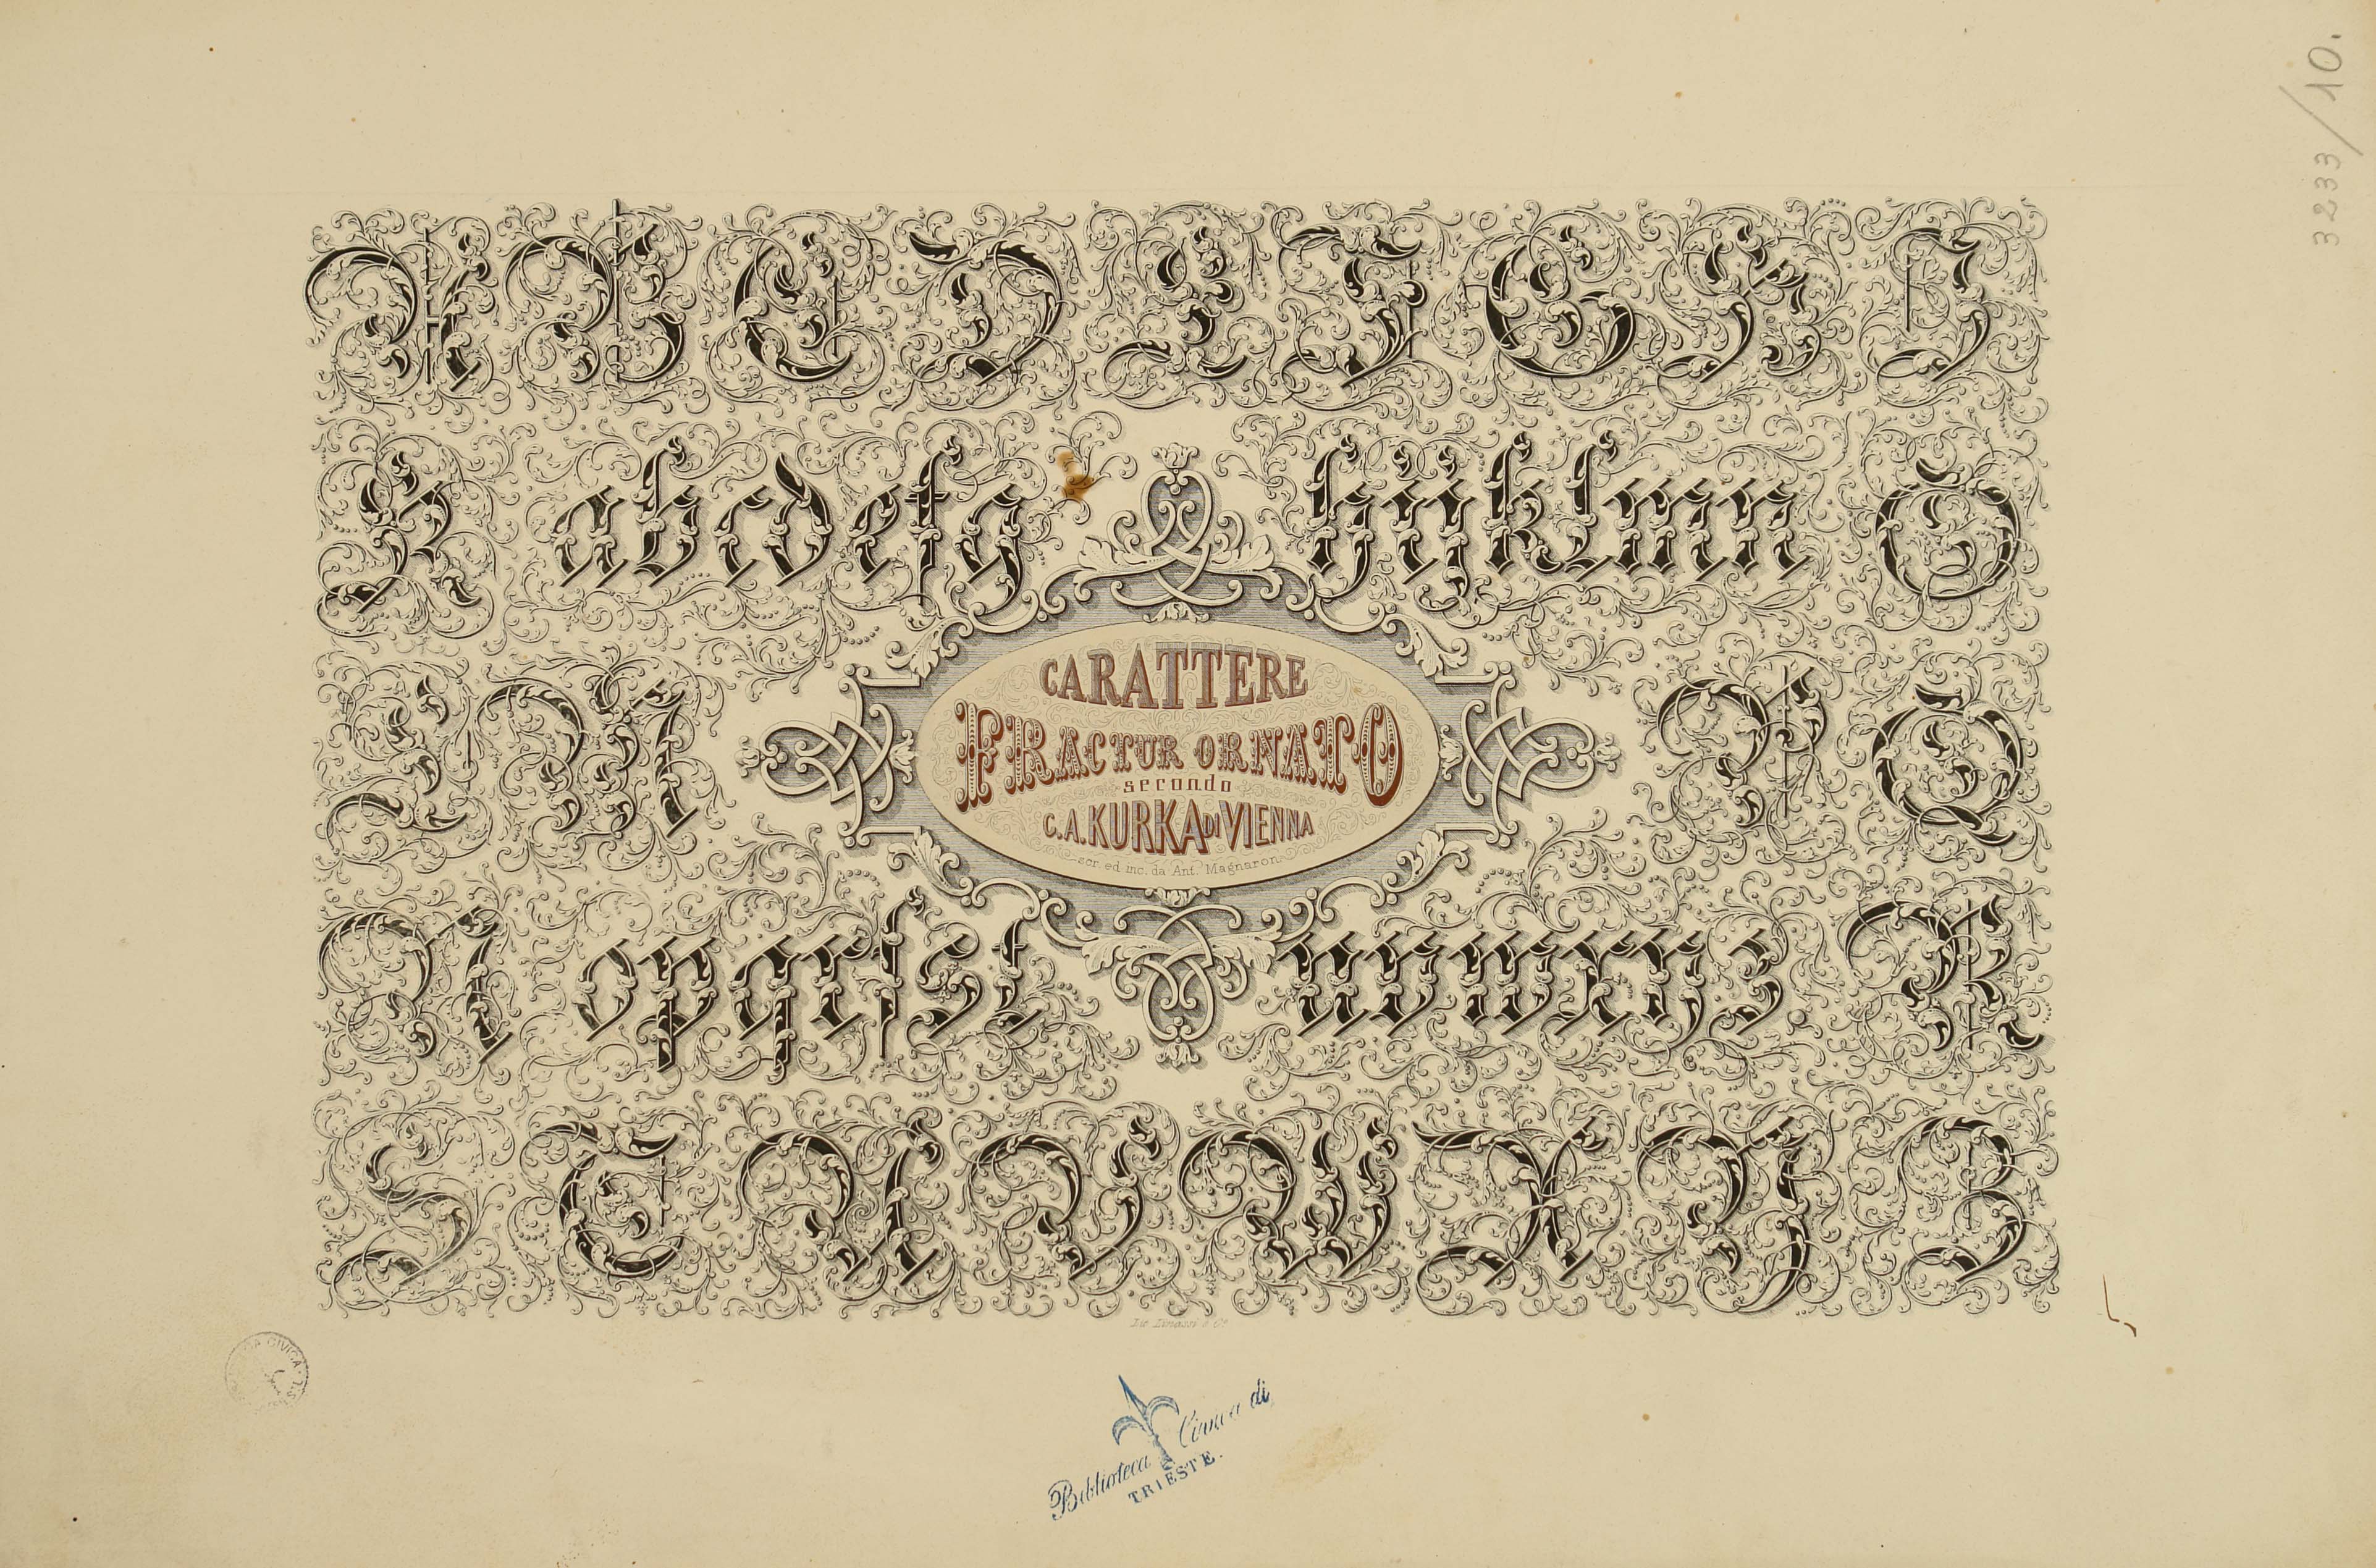 3233/10.
A B C D E F G H I
K a b c d e f g h i j k l m n O
L M P Q
N o p q r ſ s t u v w x y z R
S T U V W X Y Z
CARATTERE
FRACTUR ORNATO
secondo
C.A. KURKA DI VIENNA
scr. ed inc. da Ant. Magnaron
Lit. Linassi & Cº
CIVICA
Biblioteca Civica di
TRIESTE.